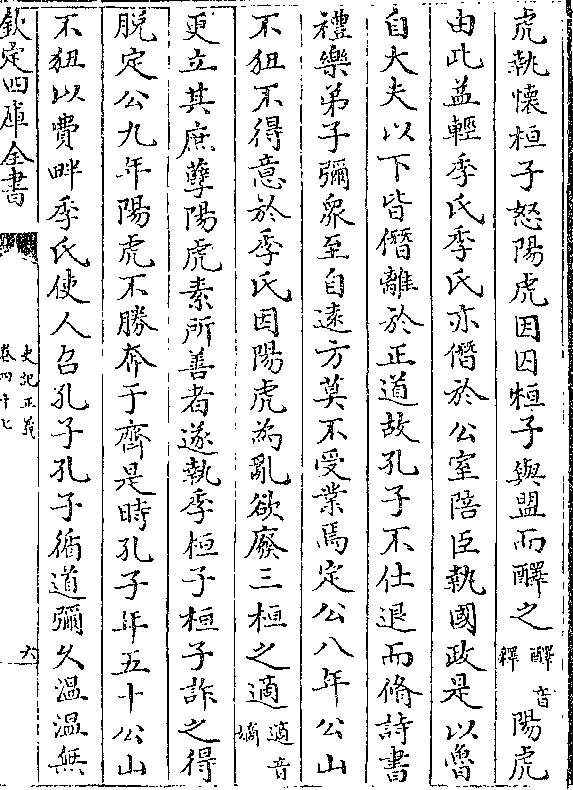 虎執懷桓子怒陽虎因囚桓子與盟而醳之醳音釋陽虎
由此益輕季氏季氏亦僭於公室陪臣執國政是以魯
自大夫以下皆僭離於正道故孔子不仕退而脩詩書
禮樂弟子彌衆至自遠方莫不受業焉定公八年公山
不狃不得意於季氏因陽虎為亂欲廢三桓之適適音嫡
更立其庶孽陽虎素所善者遂執季桓子桓子詐之得
脫定公九年陽虎不勝奔于齊是時孔子年五十公山
不狃以費畔季氏使人召孔子孔子循道彌久溫溫無
欽定四庫全書
史記正義
卷四十七
六